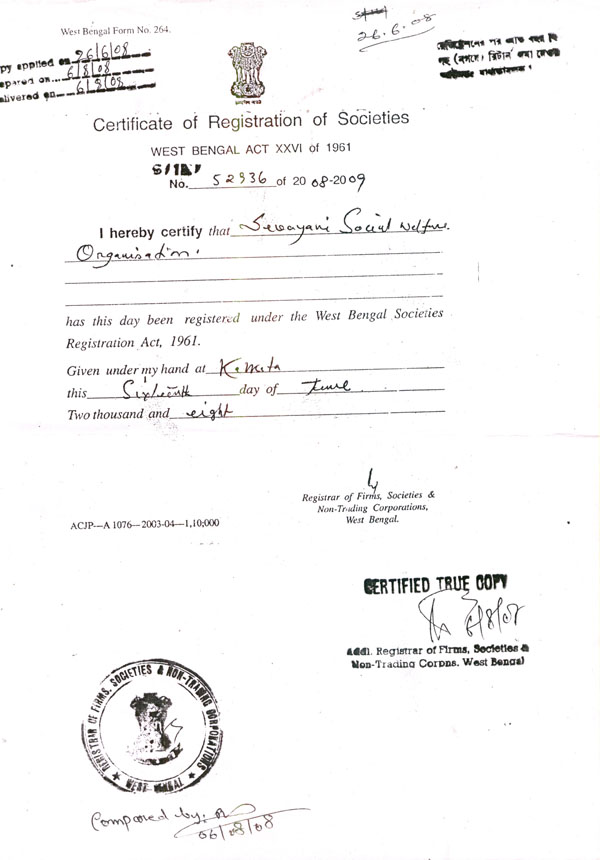 West Bengal Form No. 264.
26.6.08
py applied on 26/6/08
epared on 6/8/08
elivered on 6/8/08
Certificate of Registration of Societies
WEST BENGAL ACT XXVI of 1961
No. 52936 of 2008-2009
I hereby certify that Sevayani Social Welfare
Organisation.
has this day been registered under the West Bengal Societies
Registration Act, 1961.
Given under my hand at Kolkata
this Sixteenth day of June
Two thousand and eight
Registrar of Firms, Societies &
Non-Trading Corporations,
West Bengal.
ACJP—A 1076—2003-04—1,10,000
CERTIFIED TRUE COPY
6/8/08
Addl. Registrar of Firms, Societies &
Non-Trading Corpns. West Bengal
REGISTRAR OF FIRMS, SOCIETIES & NON-TRADING CORPORATIONS
WEST BENGAL
Compared by:
06/08/08